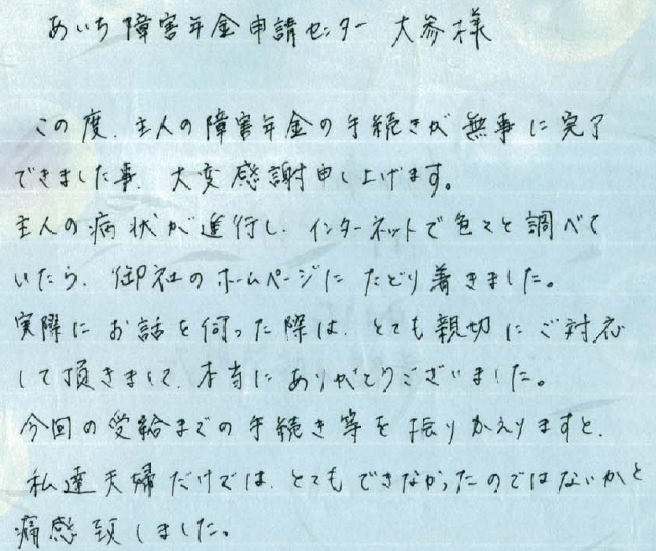 あいち障害年金申請センター 大参様
この度、主人の障害年金の手続きが無事に完了
できました事、大変感謝申し上げます。
主人の病状が進行し、インターネットで色々と調べて
いたら、御社のホームページにたどり着きました。
実際にお話を伺った際は、とても親切にご対応
して頂きまして、本当にありがとうございました。
今回の受給までの手続き等を振りかえりますと、
私達夫婦だけでは、とてもできなかったのではないかと
痛感致しました。